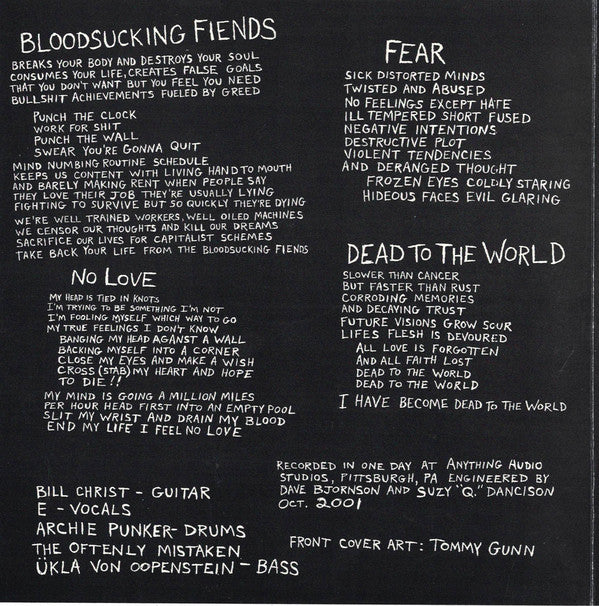 BLOODSUCKING FIENDS
BREAKS YOUR BODY AND DESTROYS YOUR SOUL
CONSUMES YOUR LIFE, CREATES FALSE GOALS
THAT YOU DON'T WANT BUT YOU FEEL YOU NEED
BULLSHIT ACHIEVEMENTS FUELED BY GREED
PUNCH THE CLOCK
WORK FOR SHIT
PUNCH THE WALL
SWEAR YOU'RE GONNA QUIT
MIND NUMBING ROUTINE SCHEDULE
KEEPS US CONTENT WITH LIVING HAND TO MOUTH
AND BARELY MAKING RENT WHEN PEOPLE SAY
THEY LOVE THEIR JOB THEY'RE USUALLY LYING
FIGHTING TO SURVIVE BUT SO QUICKLY THEY'RE DYING
WE'RE WELL TRAINED WORKERS, WELL OILED MACHINES
WE CENSOR OUR THOUGHTS AND KILL OUR DREAMS
SACRIFICE OUR LIVES FOR CAPITALIST SCHEMES
TAKE BACK YOUR LIFE FROM THE BLOODSUCKING FIENDS
NO LOVE
MY HEAD IS TIED IN KNOTS
I'M TRYING TO BE SOMETHING I'M NOT
I'M FOOLING MYSELF WHICH WAY TO GO
MY TRUE FEELINGS I DON'T KNOW
BANGING MY HEAD AGAINST A WALL
BACKING MYSELF INTO A CORNER
CLOSE MY EYES AND MAKE A WISH
CROSS (STAB) MY HEART AND HOPE
TO DIE!!
MY MIND IS GOING A MILLION MILES
PER HOUR HEAD FIRST INTO AN EMPTY POOL
SLIT MY WRIST AND DRAIN MY BLOOD
END MY LIFE I FEEL NO LOVE
BILL CHRIST - GUITAR
E - VOCALS
ARCHIE PUNKER - DRUMS
THE OFTENLY MISTAKEN
ÜKLA VON OOPENSTEIN - BASS
FEAR
SICK DISTORTED MINDS
TWISTED AND ABUSED
NO FEELINGS EXCEPT HATE
ILL TEMPERED SHORT FUSED
NEGATIVE INTENTIONS
DESTRUCTIVE PLOT
VIOLENT TENDENCIES
AND DERANGED THOUGHT
FROZEN EYES COLDLY STARING
HIDEOUS FACES EVIL GLARING
DEAD TO THE WORLD
SLOWER THAN CANCER
BUT FASTER THAN RUST
CORRODING MEMORIES
AND DECAYING TRUST
FUTURE VISIONS GROW SOUR
LIFES FLESH IS DEVOURED
ALL LOVE IS FORGOTTEN
AND ALL FAITH LOST
DEAD TO THE WORLD
DEAD TO THE WORLD
I HAVE BECOME DEAD TO THE WORLD
RECORDED IN ONE DAY AT ANYTHING AUDIO
STUDIOS, PITTSBURGH, PA ENGINEERED BY
DAVE BJORNSON AND SUZY "Q." DANCISON
OCT. 2001
FRONT COVER ART: TOMMY GUNN